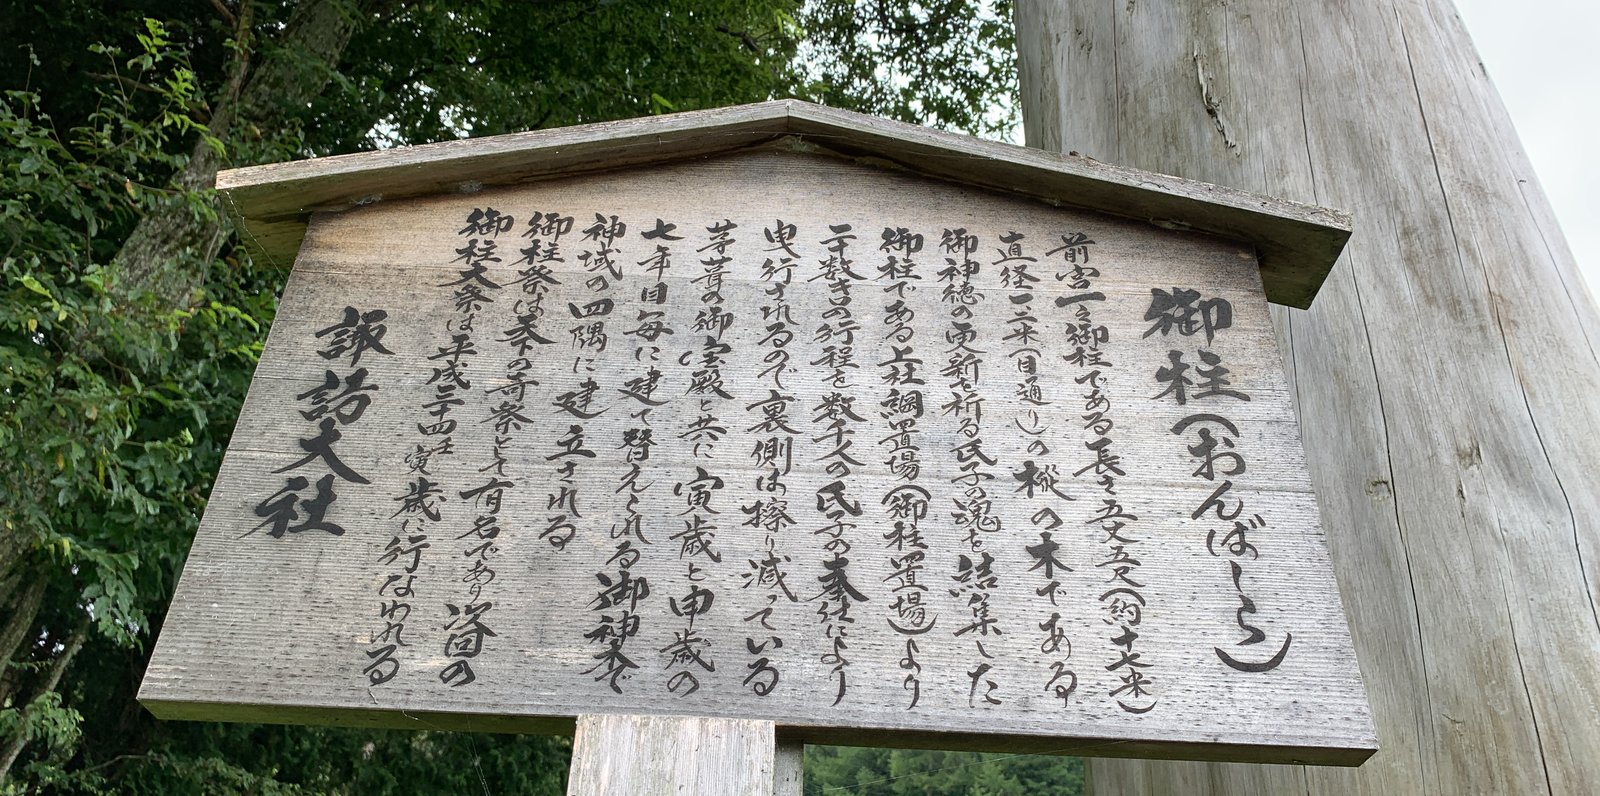 御柱(おんばしら)
前宮一之御柱である長さ五丈五尺(約十七米)
直径一三米(目通り)の樅の木である
御神徳の更新を祈る氏子の魂を結集した
御柱である上社綱置場(御柱置場)より
二十数キロの行程を数千人の氏子の奉仕により
曳行されるので裏側は擦り減っている
茅葺の御宝殿と共に寅歳と申歳の
七年目毎に建て替えられる御神木で
神域の四隅に建立される
御柱祭は天下の奇祭として有名であり次回の
御柱大祭は平成二十四壬寅歳に行なわれる
諏訪大社